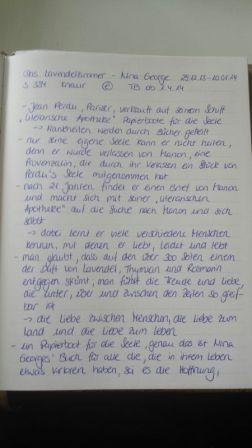 das Lavendelzimmer - Nina George 25.12.13-10.01.14
S 384 Knaur © TB ab 1.4.14
- Jean Perdu, Pariser, verkauft auf seinem Schiff
"literarische Apotheke" Papierboote für die Seele
→ Krankheiten werden durch Bücher geheilt
- nur seine eigene Seele kann er nicht heilen,
denn er wurde verlassen von Manon, eine
Provenzalin, die durch ihr verlassen ein Stück von
Perdu's Seele mitgenommen hat
- nach 21 Jahren findet er einen Brief von Manon
und macht sich mit seiner "literarischen
Apotheke" auf die Suche nach Manon und sich
selbst
→ dabei lernt er viele verschiedene Menschen
kennen, mit denen er liebt, leidet und lebt
- man glaubt, dass auf den über 300 Seiten einem
der Duft von Lavendel, Thymian und Rosmarin
entgegen strömt, man fühlt die Freude und Liebe,
die unter, über und zwischen den Zeilen so greif-
bar ist
→ die Liebe zwischen Menschen, die Liebe zum
Land und die Liebe zum Leben
- ein Papierboot für die Seele, genau das ist Nina
Georges' Buch für alle die, die in ihrem Leben
etwas verloren haben, sei es die Hoffnung,